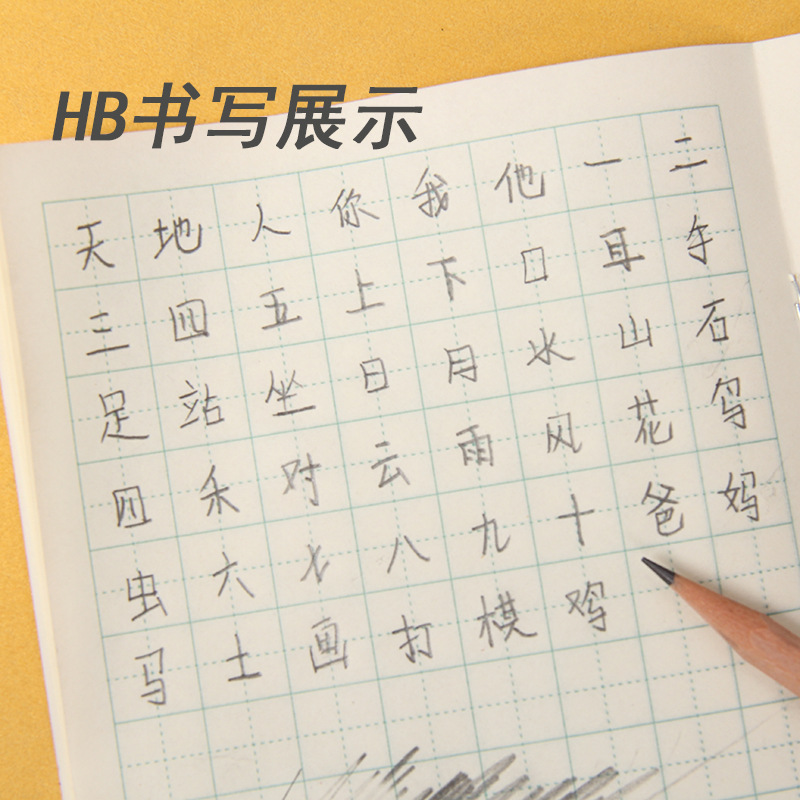 HB书写展示
天地人你我他一二
三四五上下口耳手
足站坐日月水山石
四禾对云雨风花鸟
虫六七八九十爸妈
马土画打棋鸡